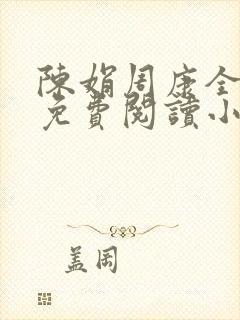 陳娟周康全
免費閱讀小
盖岡